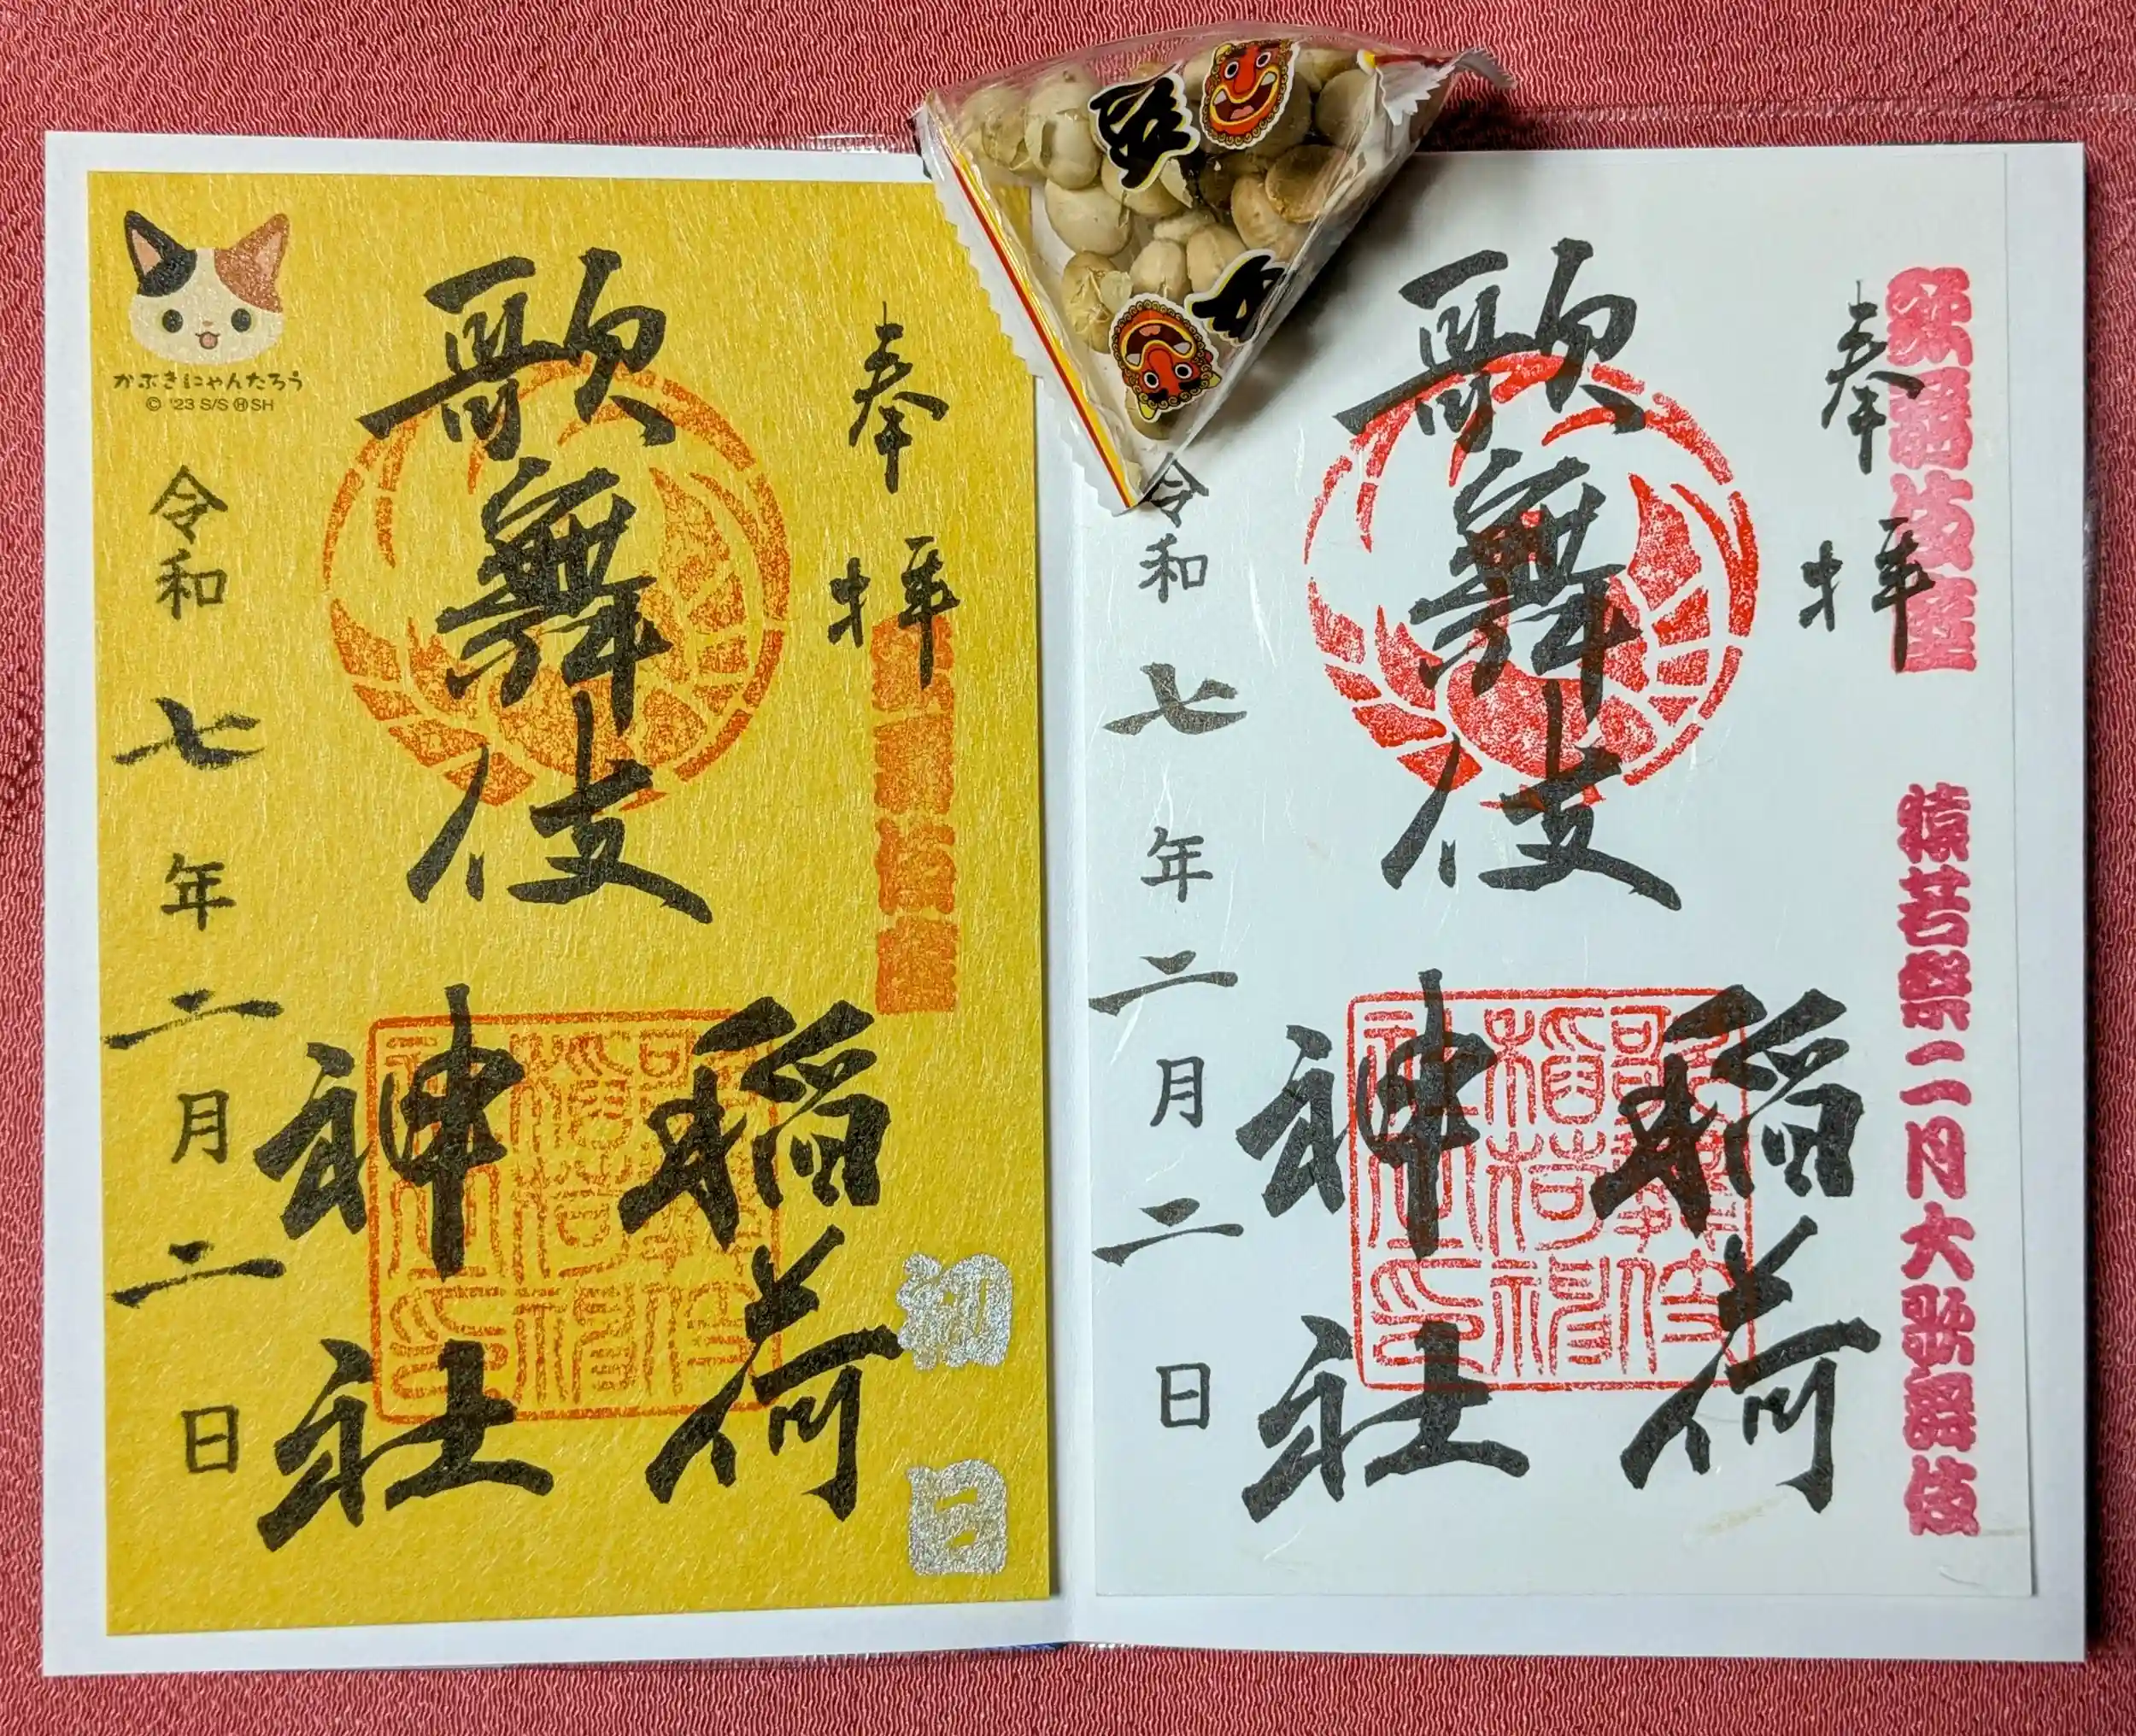 奉拝
歌舞伎座
初日
歌舞伎
稲荷
神社
令和七年二月二日
かぶきにゃんたろう
© '23 S/S Ⓗ SH
歌舞伎座
猿若祭二月大歌舞伎
奉拝
歌舞伎
稲荷
神社
歌舞伎
稲荷神
社印
令和七年二月二日